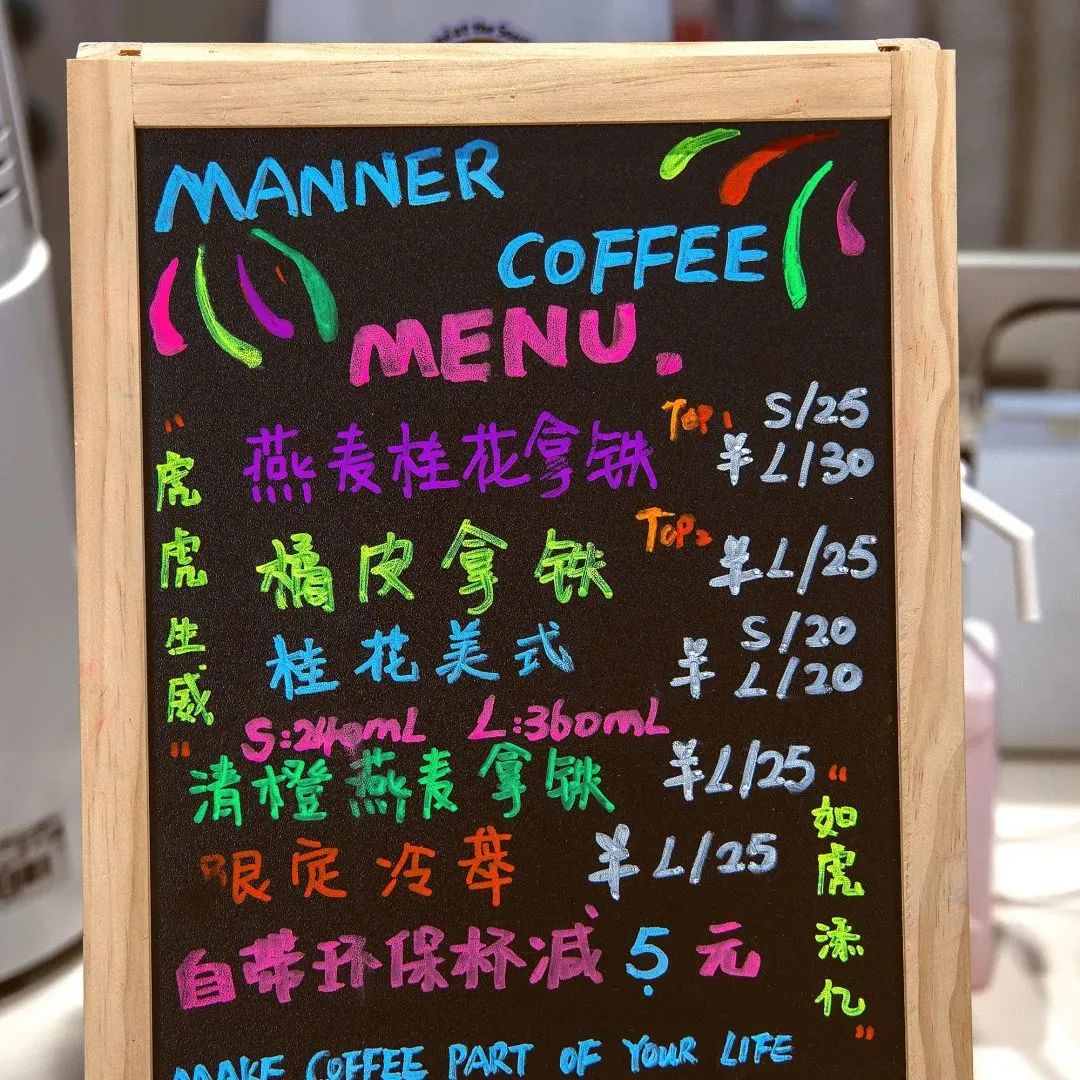 MANNER
COFFEE
MENU.
"虎虎生威"
燕麦桂花拿铁 TOP1 S/25
¥ L/30
橘皮拿铁 TOP2 ¥L/25
桂花美式 S/20
¥ L/20
S:240mL L:360mL
清橙燕麦拿铁 ¥L/25
限定冷萃 ¥L/25
"如虎添亿"
自带环保杯减5元
MAKE COFFEE PART OF YOUR LIFE